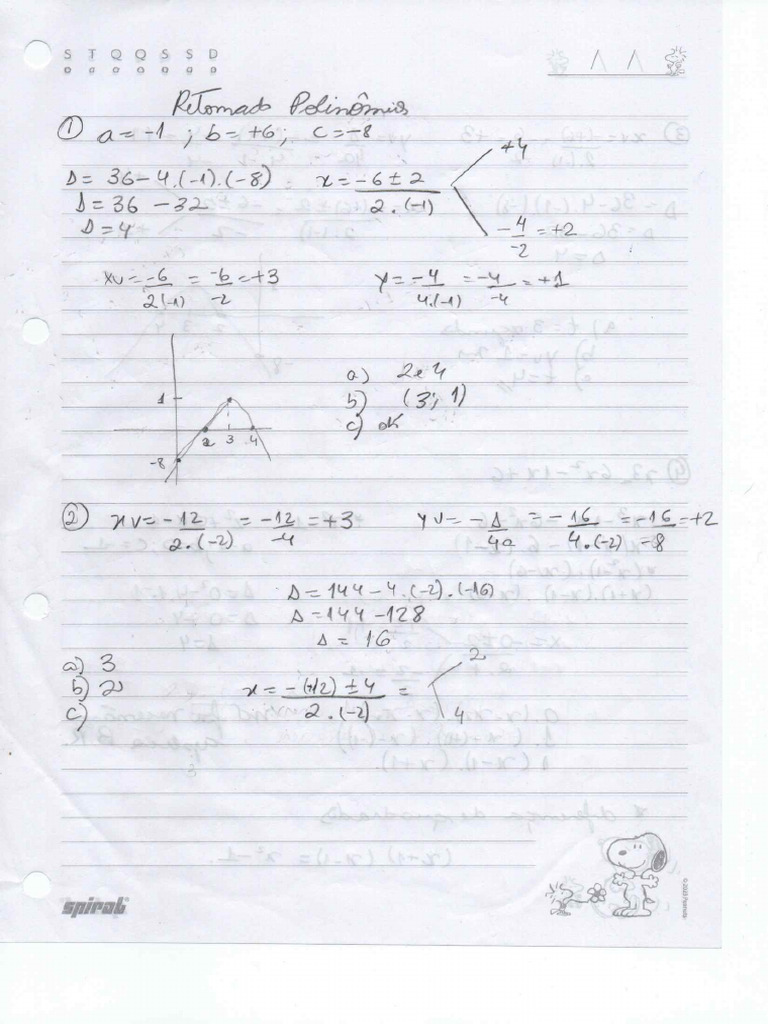 S T Q Q S S D
Retomado Polinômios
① a = -1 ; b = +6; c = -8
Δ = 36 - 4.(-1).(-8) x = -6 ± 2 / 2.(-1) +4
Δ = 36 - 32 -4/-2 = +2
Δ = 4
xv = -6 / 2(-1) = -6/-2 = +3 y = -4 / 4.(-1) = -4/-4 = +1
a) 2 e 4
1 b) (3; 1)
c) ok
2 3 4
-8
② xv = -12 / 2.(-2) = -12/-4 = +3 yv = -Δ/4a = -16 / 4.(-2) = -16/-8 = +2
Δ = 144 - 4.(-2).(-16)
Δ = 144 - 128
Δ = 16
a) 3
b) 2 x = -(+12) ± 4 / 2.(-2) = 2
c) 4
spiral